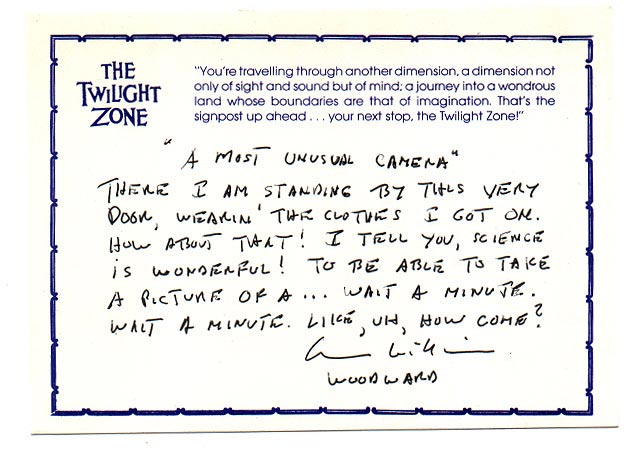 THE
TWILIGHT
ZONE
"You're travelling through another dimension, a dimension not
only of sight and sound but of mind; a journey into a wondrous
land whose boundaries are that of imagination. That's the
signpost up ahead . . . your next stop, the Twilight Zone!"
"A MOST UNUSUAL CAMERA"
THERE I AM STANDING BY THIS VERY
DOOR, WEARIN' THE CLOTHES I GOT ON.
HOW ABOUT THAT! I TELL YOU, SCIENCE
IS WONDERFUL! TO BE ABLE TO TAKE
A PICTURE OF A ... WAIT A MINUTE.
WAIT A MINUTE. LIKE, UH, HOW COME?
WOODWARD